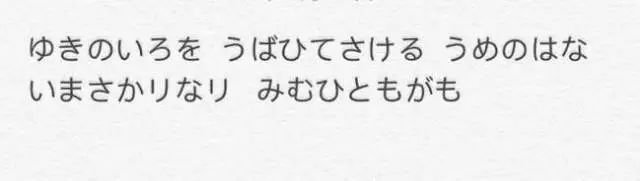 ゆきのいろを うばひてさける うめのはな
いまさかりなり みむひともがも